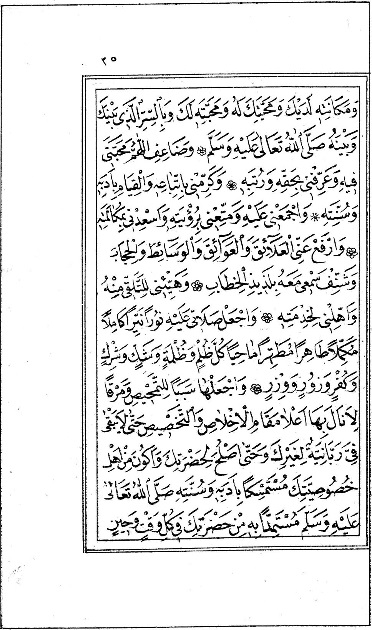 ٢٥
وَمَكَانَتِهِ لَدَيْكَ وَمَحَبَّتِكَ لَهُ وَمَحَبَّتِهِ لَكَ وَبِالسِّرِّ الَّذِى بَيْنَكَ
وَبَيْنَهُ صَلَّى اللهُ تَعَالٰى عَلَيْهِ وَسَلَّمَ ۞ وَضَاعِفِ اللّٰهُمَّ مَحَبَّتِى
فِيهِ وَعَرِّفْنِى بِحَقِّهِ وَرُتَبِهِ ۞ وَكَرِّمْنِى بِاتِّبَاعِهِ وَالْقِيَامِ بِاَدَبِهِ
وَسُنَّتِهِ ۞ وَاجْمَعْنِى عَلَيْهِ وَمَتِّعْنِى بِرُؤْيَتِهِ وَاَسْعِدْنِى بِمُكَالَمَتِهِ
۞ وَارْفَعْ عَنِّى الْعَلَآئِقَ وَالْعَوَآئِقَ وَالْوَسَائِطَ وَالْحِجَابَ
وَشَنِّفْ سَمْعِى مَعَهُ بِلَذِيذِ الْخِطَابِ ۞ وَهَيِّئْنِى لِلتَّلَقِّى مِنْهُ
وَاَهِّلْنِى لِخِدْمَتِهِ ۞ وَاجْعَلْ صَلَاتِى عَلَيْهِ نُورًا نَيِّرًا كَامِلًا
مُكَمَّلًا طَاهِرًا مُطَهَّرًا مَاحِيًا كُلَّ ظُلْمٍ وَظُلْمَةٍ وَشَكٍّ وَشِرْكٍ
وَكُفْرٍ وَزُورٍ وَوِزْرٍ ۞ وَاجْعَلْهَا سَبَبًا لِلتَّمْحِيصِ وَمَرْقًا
لِاَنَالَ بِهَا اَعْلَا مَقَامِ الْاِخْلَاصِ وَالتَّخْصِيصِ حَتّٰى لَا يَبْقٰى
فِىَّ رَبَّانِيَّةٌ لِغَيْرِكَ وَحَتّٰى اَصْلُحَ لِحَضْرَتِكَ وَاَكُونَ مِنْ اَهْلِ
خُصُوصِيَّتِكَ مُسْتَمْسِكًا بِاَدَبِهِ وَسُنَّتِهِ صَلَّى اللهُ تَعَالٰى
عَلَيْهِ وَسَلَّمَ مُسْتَمِدًّا بِهِ مِنْ حَضْرَتِكَ فِى كُلِّ وَقْتٍ وَحِينٍ